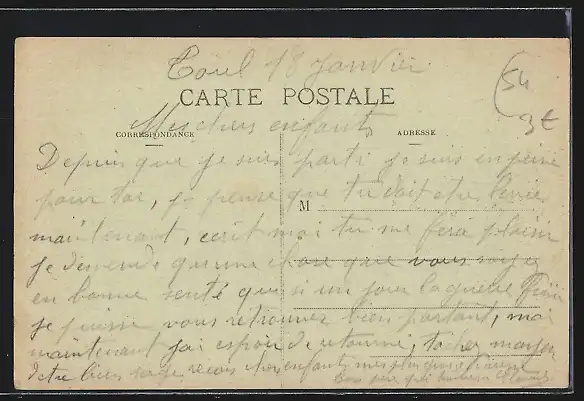 Toul 18 Janvier
54
CARTE POSTALE
3€
Mes chers enfants
CORRESPONDANCE
ADRESSE
Depuis que je suis parti je suis en peine
pour toi, je pense que tu doit etre
M
maintenant, ecrit moi tu me fera plaisir
je demende qu'une chose que vous soyez
en bonne senté que si un jour la guerre fini
je puisse vous retrouver bien portant, moi
maintenant j'ai espoir de retourne, tacher moyen
d'etre bien sage recois chers enfants mes plus